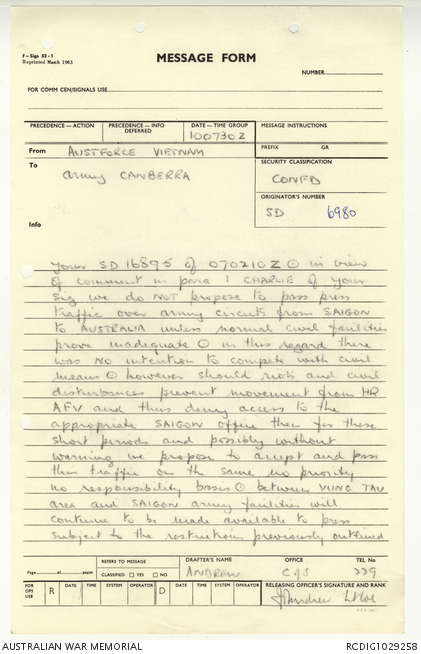 F-Sigs 52-1
Reprinted March 1963
MESSAGE FORM
NUMBER
FOR COMM CEN/SIGNALS USE
PRECEDENCE—ACTION
PRECEDENCE—INFO
DEFERRED
DATE—TIME GROUP
100730Z
MESSAGE INSTRUCTIONS
From AUSTFORCE VIETNAM
PREFIX GR
To
Army CANBERRA
SECURITY CLASSIFICATION
CONFD
ORIGINATOR'S NUMBER
SD 6980
Info
Your SD 16895 of 070210Z ⊙ in view
of comment in para 1 CHARLIE of your
sig we do NOT propose to pass press
traffic over army circuits from SAIGON
to AUSTRALIA unless normal civil facilities
prove inadequate ⊙ in this regard there
was NO intention to compete with civil
means ⊙ however should riots and civil
disturbances prevent movement from HQ
AFV and thus deny access to the
appropriate SAIGON office then for these
short periods and possibly without
warning we propose to accept and pass
this traffic on the same no priority
no responsibility basis ⊙ between VUNG TAU
area and SAIGON army facilities will
continue to be made available to press
subject to the restrictions previously outlined
Page of pages
REFERS TO MESSAGE
CLASSIFIED YES NO
DRAFTER'S NAME
ANDREW
OFFICE
CofS
TEL No
229
FOR OPS USE
R
DATE
TIME
SYSTEM
OPERATOR
D
DATE
TIME
SYSTEM
OPERATOR
RELEASING OFFICER'S SIGNATURE AND RANK
JAndrew Lt Col
AUSTRALIAN WAR MEMORIAL
RCDIG1029258